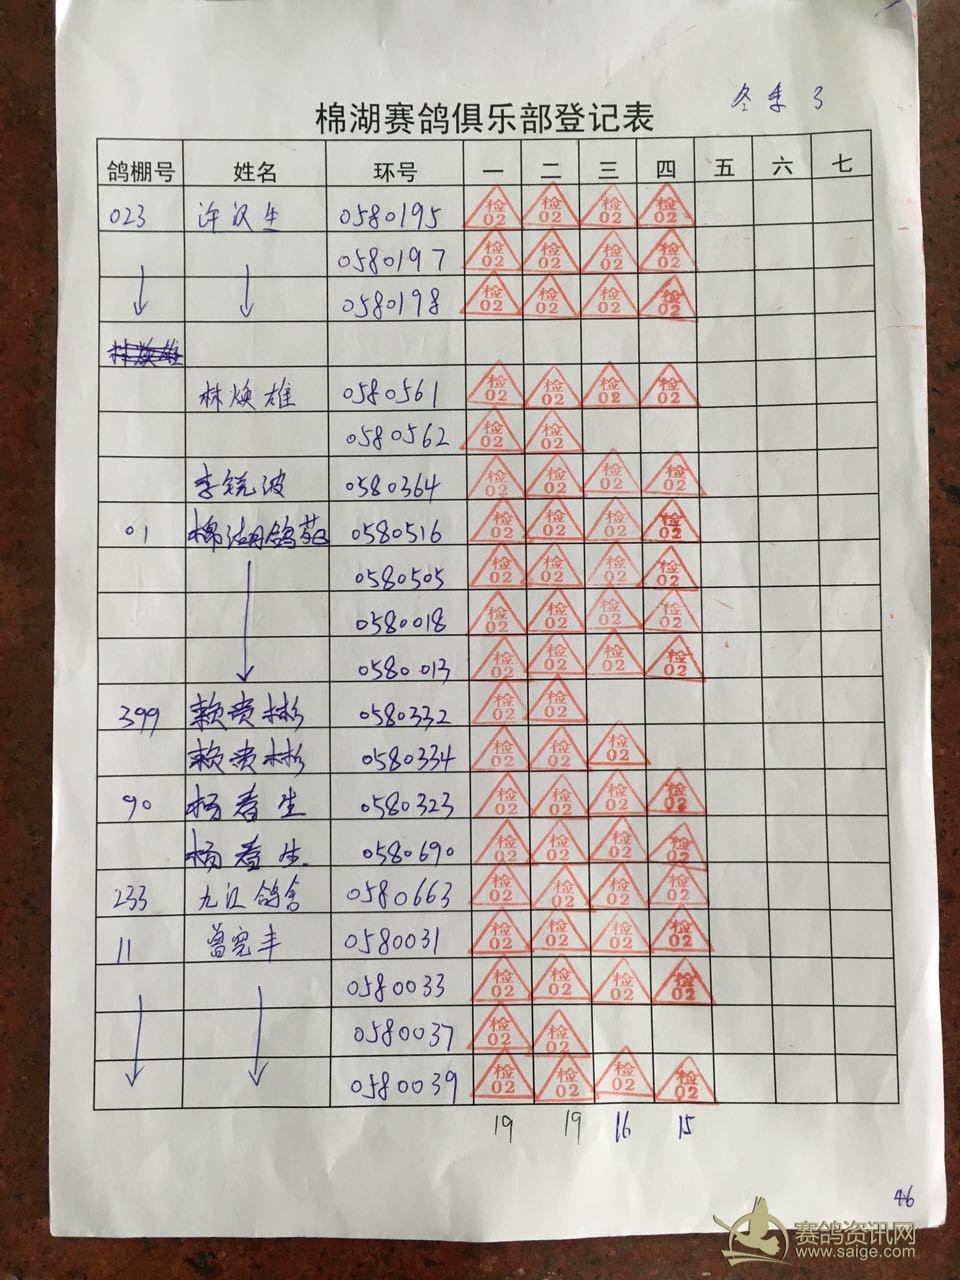 冬季 3
棉湖赛鸽俱乐部登记表
鸽棚号 姓名 环号 一 二 三 四 五 六 七
023 许汉生 0580195 检02 检02 检02 检02
0580197 检02 检02 检02 检02
0580198 检02 检02 检02 检02
林焕雄 0580561 检02 检02 检02 检02
0580562 检02 检02
李锐波 0580364 检02 检02 检02 检02
01 棉湖鸽苑 0580516 检02 检02 检02 检02
0580505 检02 检02 检02 检02
0580018 检02 检02 检02 检02
0580013 检02 检02 检02 检02
399 赖贵彬 0580332 检02 检02
赖贵彬 0580334 检02 检02 检02
90 杨春生 0580323 检02 检02 检02 检02
杨春生 0580690 检02 检02 检02 检02
233 九江鸽舍 0580663 检02 检02 检02 检02
11 曾宪丰 0580031 检02 检02 检02 检02
0580033 检02 检02 检02 检02
0580037 检02 检02
0580039 检02 检02 检02 检02
19 19 16 15
46
赛鸽资讯网
www.saige.com